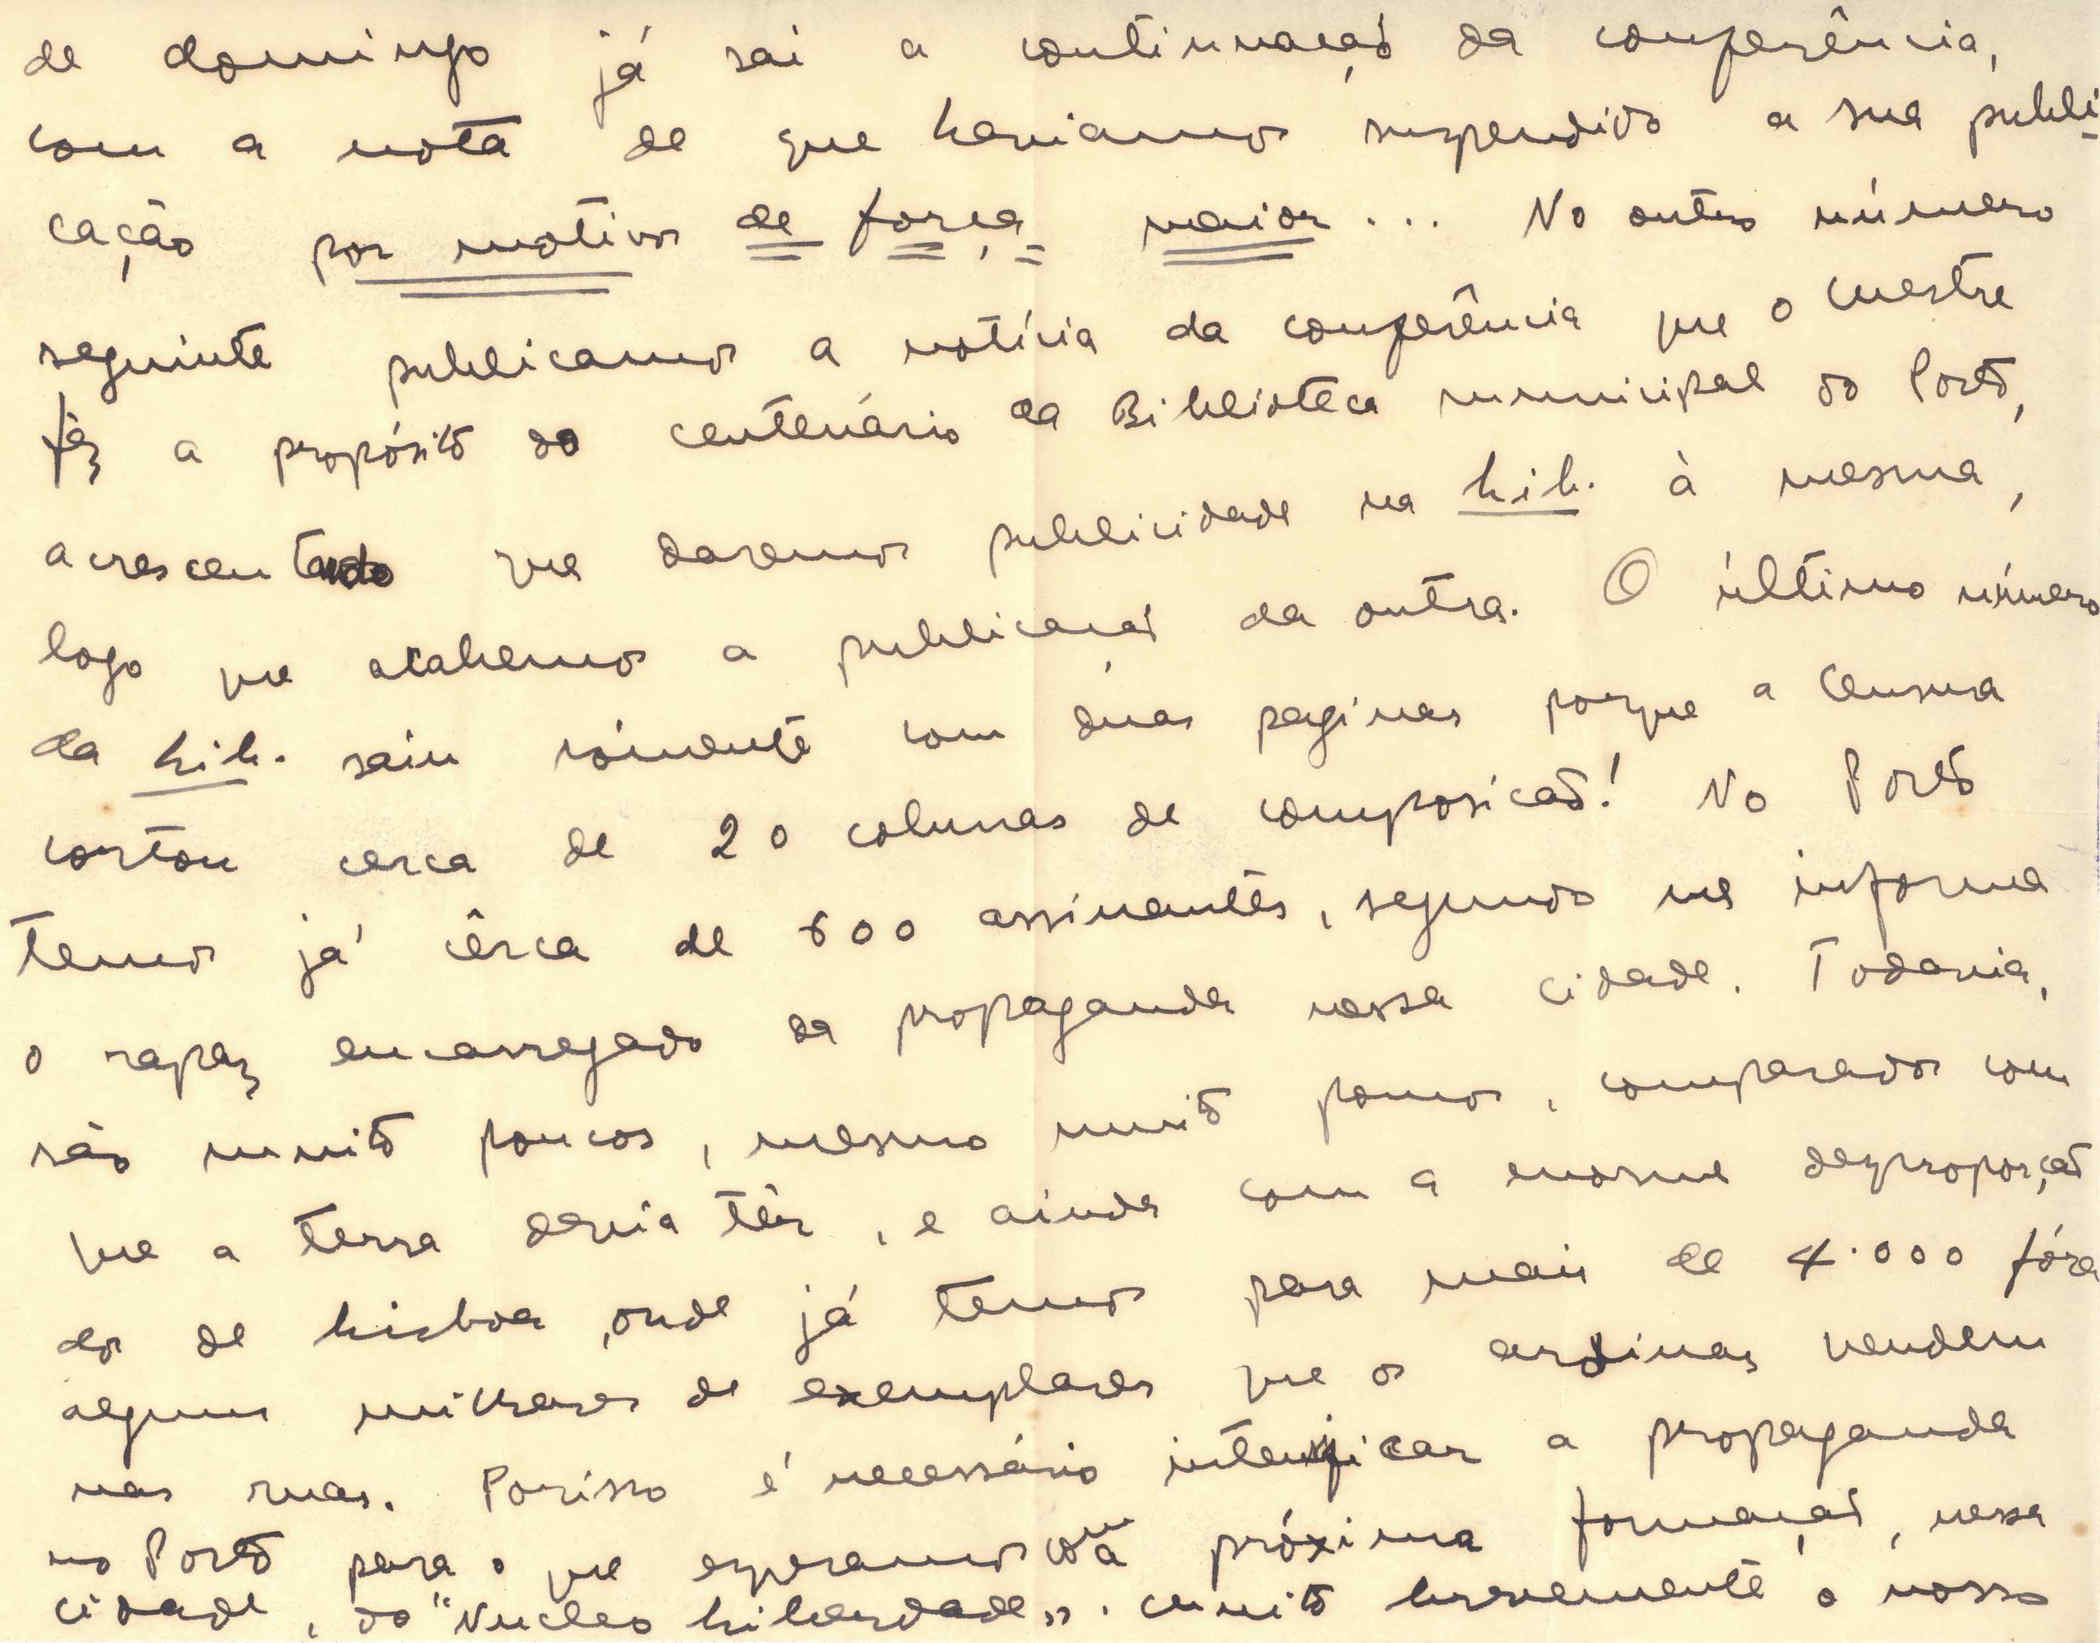 de domingo já sai a continuação da conferência,
com a nota de que haviamos suspendido a sua publi-
cação por motivos de força maior... No outro número
seguinte publicamos a notícia da conferência que o Mestre
fêz a propósito do centenário da Biblioteca municipal do Porto,
acrescentando que daremos publicidade na Lib. à mesma,
logo que acabemos a publicação da outra. O último número
da Lib. saíu sómente com duas paginas porque a Censura
cortou cerca de 20 colunas de composicão! No Porto
temos já cêrca de 600 assinantes, segundo me informa
o rapaz encarregado da propaganda nessa cidade. Todavia,
são muito poucos, mesmo muito poucos, comparados com
que a terra devia têr, e ainda com a enorme desproporção
dos de Lisboa, onde já temos para mais de 4.000 fóra
alguns milhares de exemplares que os ardinas vendem
nas ruas. Porisso é necessário intensificar a propaganda
no Porto para o que esperamos com a próxima formação, nessa
cidade, do "Nucleo Liberdade". Muito brevemente o nosso